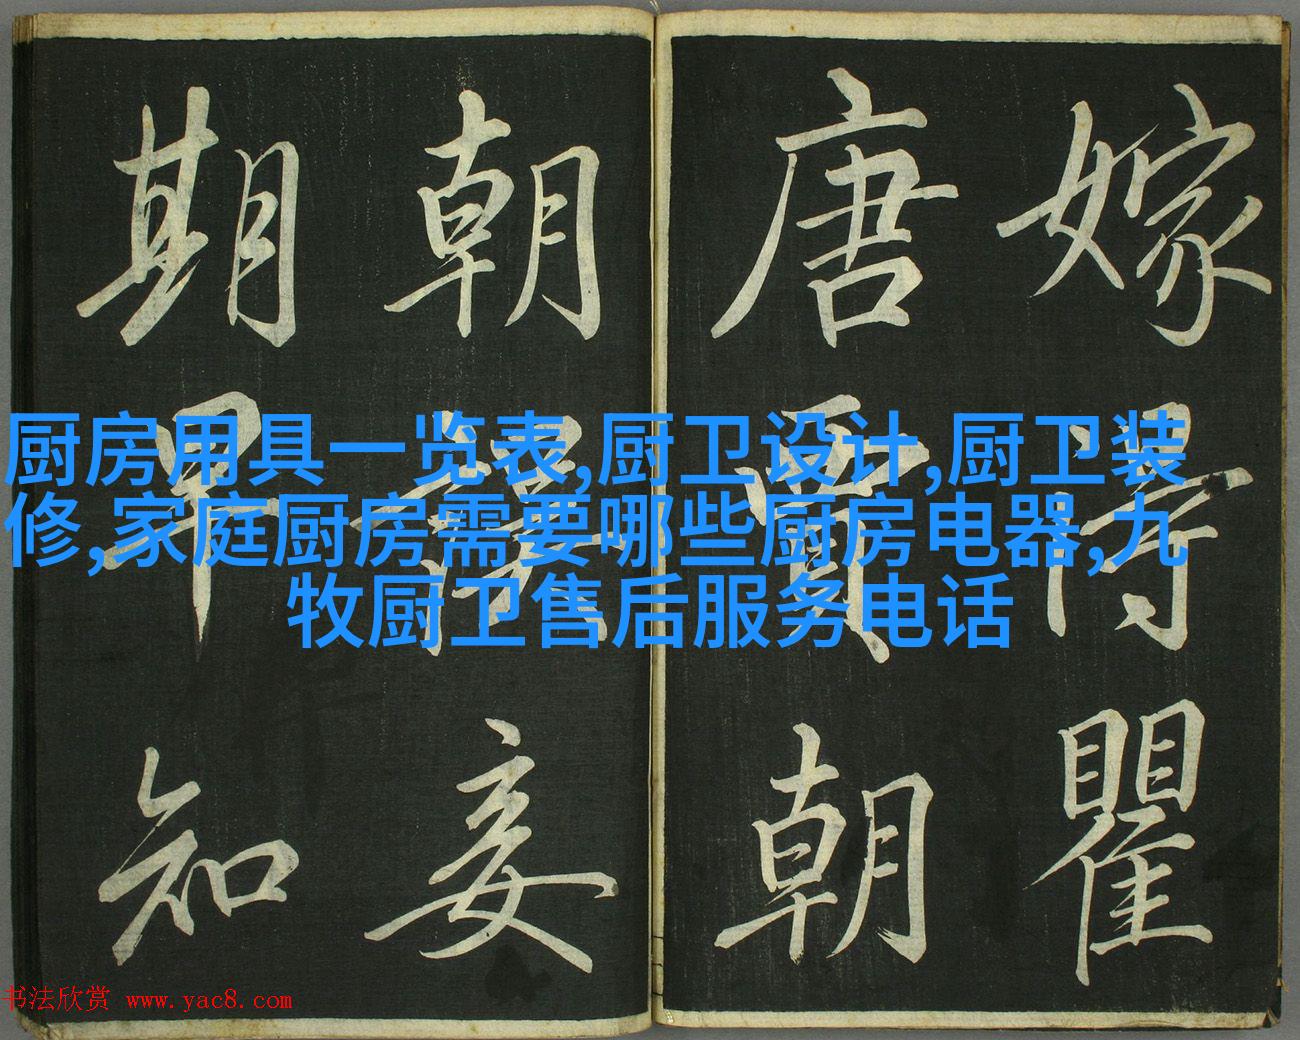 嫁得瞿
唐賈朝
朝誤妾
期早知
厨房用具一览表,厨卫设计,厨卫装
修,家庭厨房需要哪些厨房电器,九
牧厨卫售后服务电话
书法欣赏 www.yac8.com